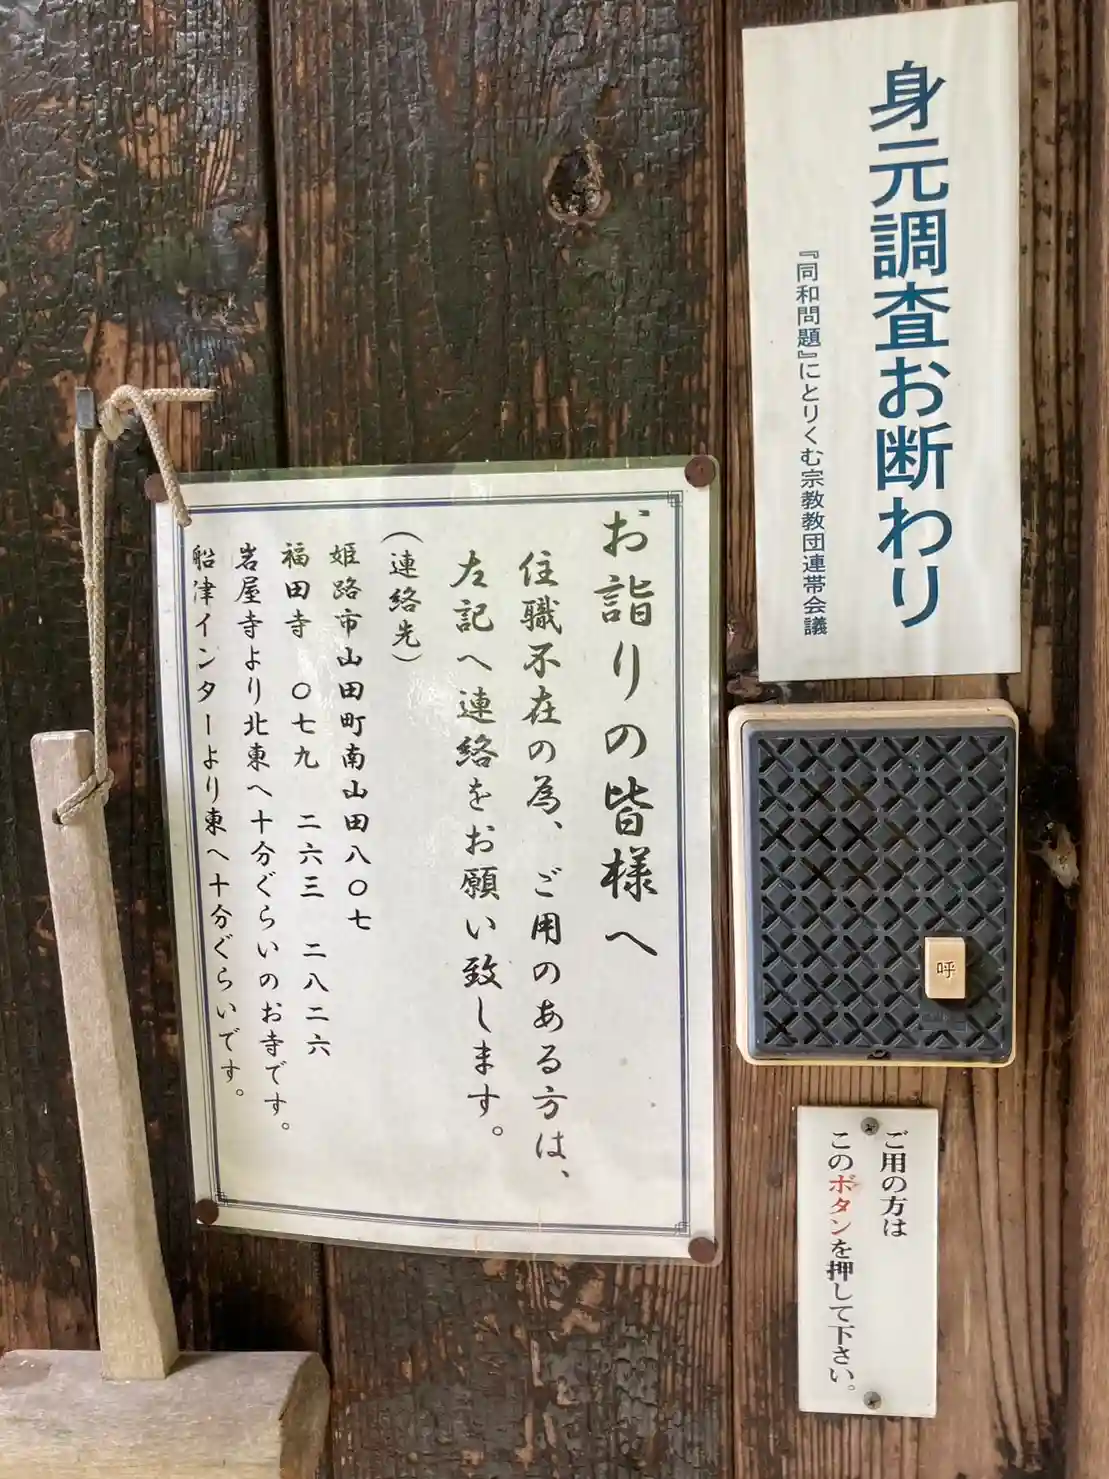 身元調査お断わり
『同和問題』にとりくむ宗教教団連帯会議
お詣りの皆様へ
住職不在の為、ご用のある方は、
左記へ連絡をお願い致します。
(連絡先)
姫路市山田町南山田八〇七
福田寺 〇七九 二六三 二八二六
岩屋寺より北東へ十分ぐらいのお寺です。
船津インターより東へ十分ぐらいです。
呼
ご用の方は
このボタンを押して下さい。